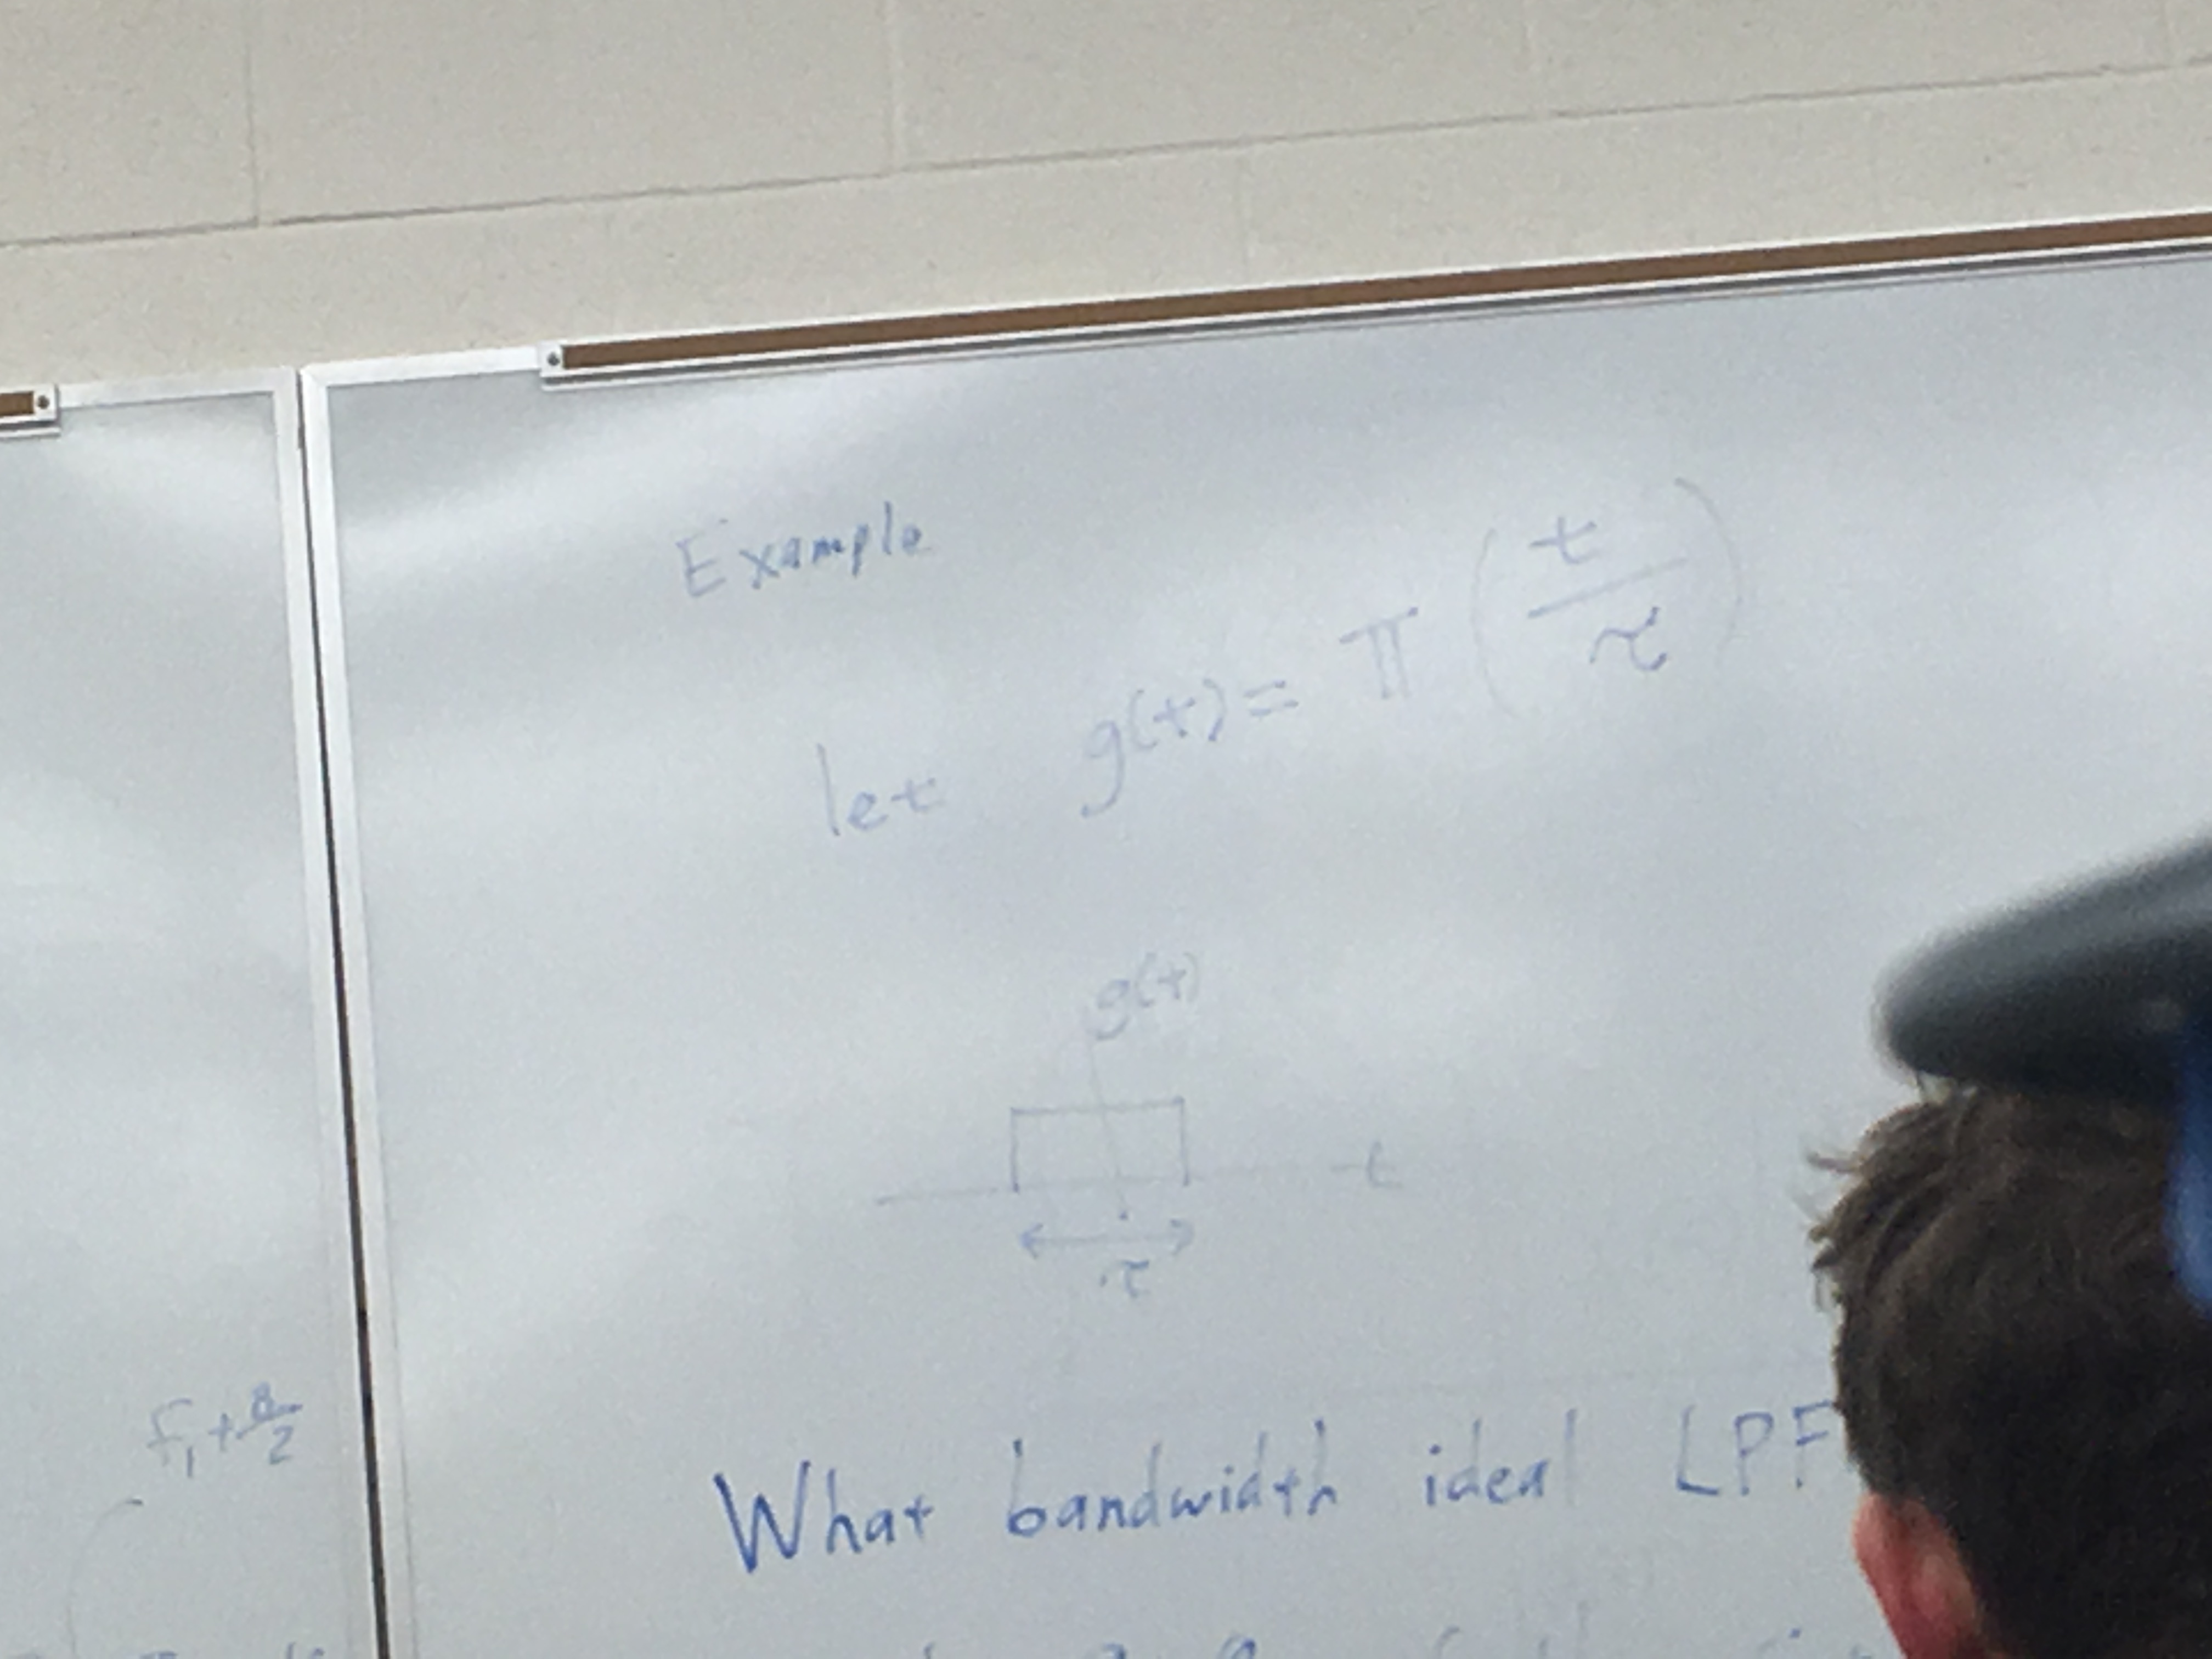 Example
let g(t) = Π (t/τ)
g(t)
t
τ
f₁ + B/2
What bandwidth ideal LPF